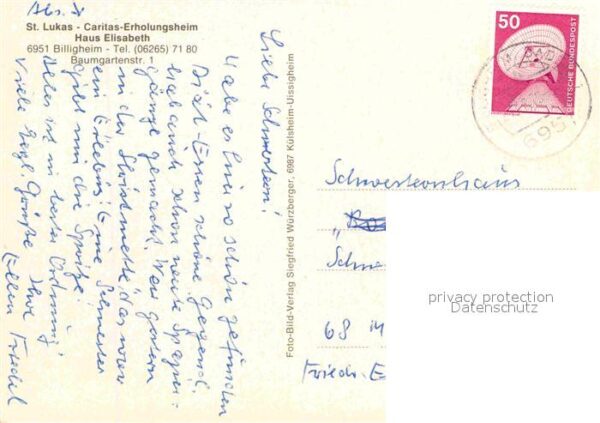 Abs. 
St. Lukas - Caritas-Erholungsheim
Haus Elisabeth
6951 Billigheim - Tel. (06265) 71 80
Baumgartenstr. 1
Liebe Schwestern!
Habe es hier so schön gefunden
Diät-Essen schöne Gegend.
hab auch schon heute Spazier=
gänge gemacht. War gestern
in der Christmette, das war
ein Erlebnis! Eine
gibt mir die Spritze.
Alles ist in bester Ordnung!
Viele herzl. Grüße Ihre
Ellen Friedel
Foto-Bild-Verlag Siegfried Würzberger, 6987 Külsheim-Uissigheim
50
DEUTSCHE BUNDESPOST
695
Schwesternhaus
Schwe
68 M
Friedr. E
privacy protection
Datenschutz